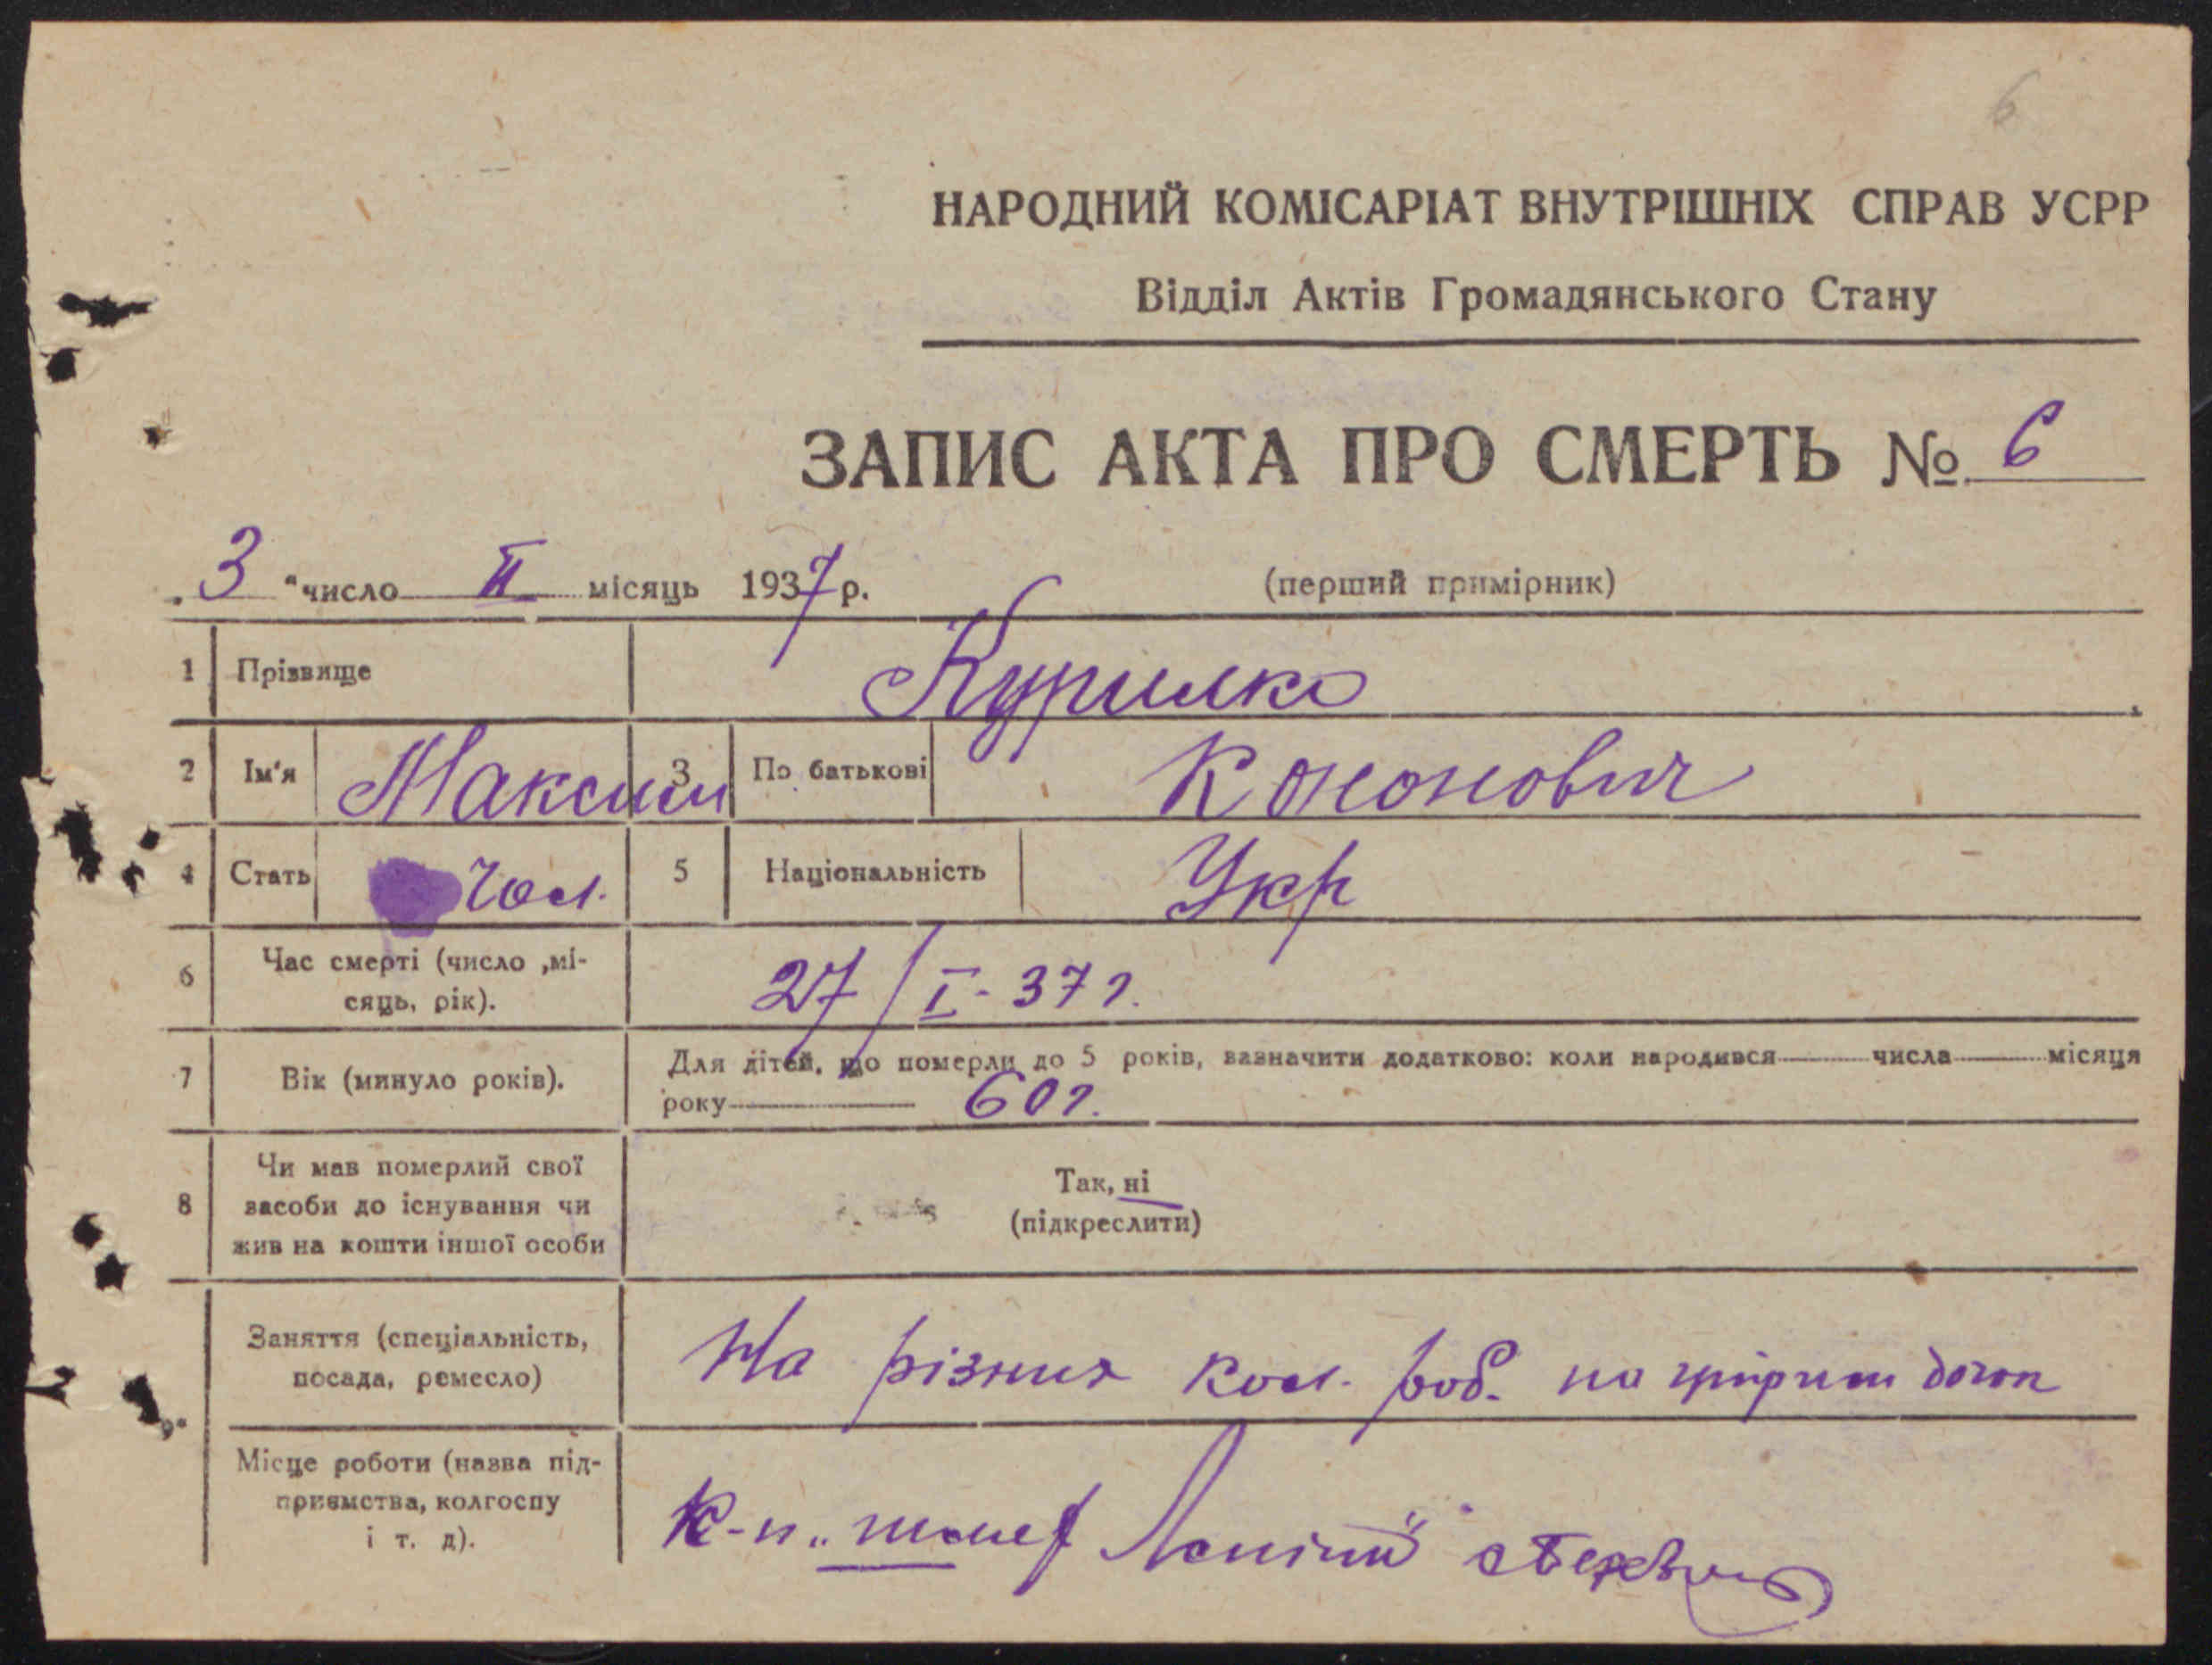 6
НАРОДНИЙ КОМІСАРІАТ ВНУТРІШНІХ СПРАВ УСРР
Відділ Актів Громадянського Стану
ЗАПИС АКТА ПРО СМЕРТЬ № 6
„3 “ число II місяць 1937 р. (перший примірник)
1 Прізвище Курилко
2 Ім'я Максим 3 По батькові Кононович
4 Стать Чол. 5 Національність Укр
6 Час смерті (число ,мі-
сяць, рік). 27/I-37 р.
7 Вік (минуло років). Для дітей, що померли до 5 років, зазначити додатково: коли народився числа місяця
року 60 р.
8 Чи мав померлий свої
засоби до існування чи
жив на кошти іншої особи
Так, ні
(підкреслити)
Заняття (спеціальність,
посада, ремесло) На різних кол. роб.
9. Місце роботи (назва під-
приємства, колгоспу
і т. д).
К-п